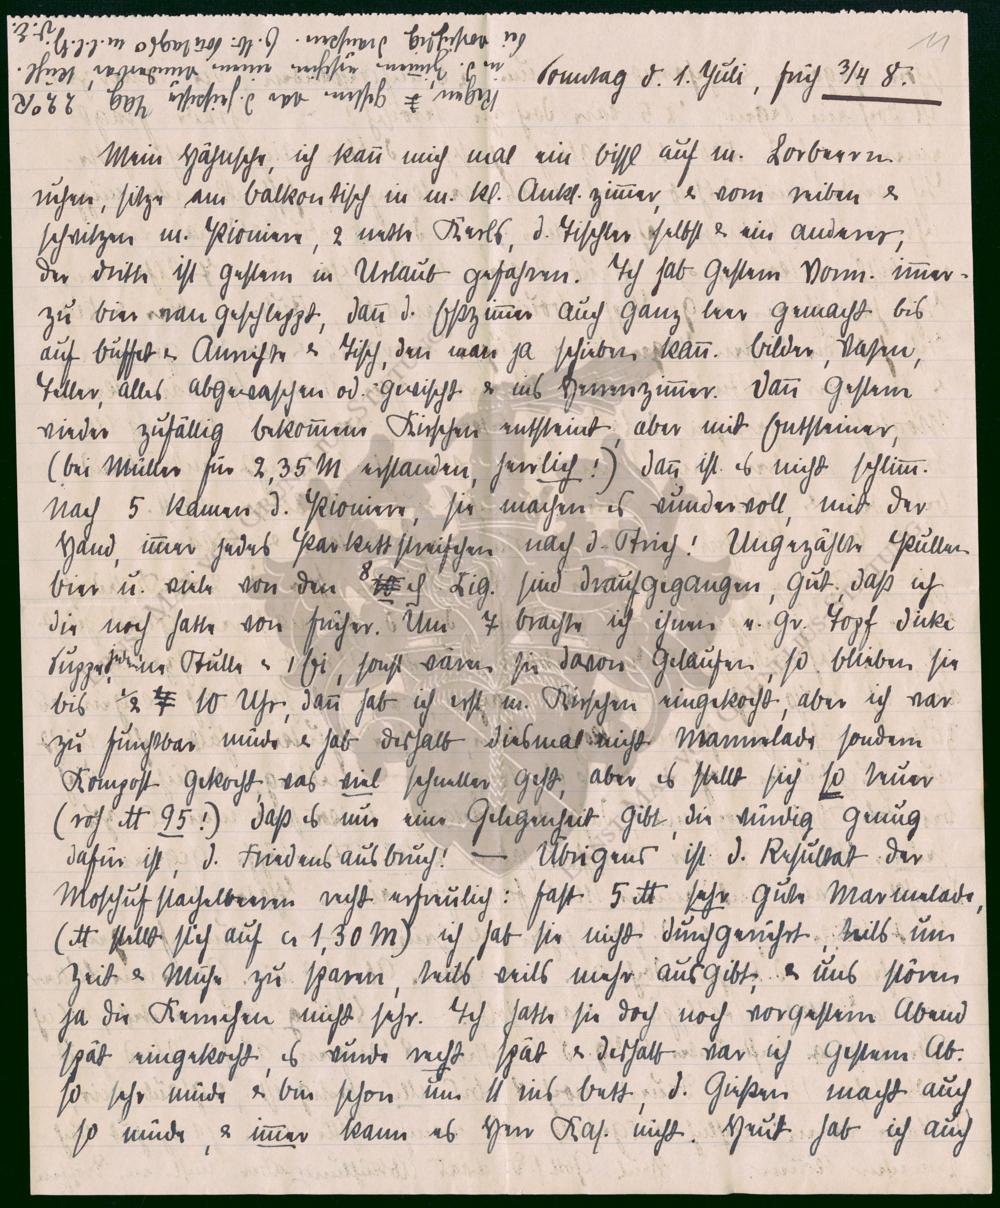 11
Sonntag d. 1. Juli, früh 3/4 8.
Mein Hähnsche, ich kann mich mal ein bissl auf m. Lorbeern
ruhen, sitze am balkontisch in m. kl. Ankl. zimmer, & vorn reiben &
schwitzen m. Pioniere, 2 nette Kerls, d. Tischler selbst & ein anderer,
der dritte ist gestern in Urlaub gefahren. Ich hab gestern Vorm. immer-
zu bier ran geschleppt, dann d. Eßzimmer auch ganz leer gemacht bis
auf buffet & Anrichte & Tisch, den man ja schieben kann. bilder, Vasen,
Teller, alles abgewaschen od. gewischt & ins Herrenzimmer. dann gestern
wieder zufällig bekommene Kirschen entsteint, aber mit Entsteiner,
(bei Müller für 2,35 M erstanden, herrlich!) dann ist es nicht schlimm.
Nach 5 kamen d. Pioniere, sie machen es wundervoll, mit der
Hand, immer jedes Parkettstreifchen nach d. Strich! Ungezählte Pullen
bier u. viele von den 8 Zig. sind draufgegangen, gut, daß ich
die noch hatte von früher. Um 7 brachte ich ihnen e. gr. Topf dicke
Suppe, jedem eine Stulle & 1 Ei, sonst wären sie davon gelaufen, so blieben sie
bis 1/2 10 Uhr, dann hab ich erst m. Kirschen eingekocht, aber ich war
zu furchtbar müde & hab deshalb diesmal nicht Marmelade sondern
Kompott gekocht, was viel schneller geht, aber es stellt sich so teuer
(roh ℔ 95!) daß es nur eine Gelegenheit gibt, die würdig genug
dafür ist, d. Friedensausbruch! — Übrigens ist d. Resultat der
Moschusstachelbeeren recht erfreulich: fast 5 ℔ sehr gute Marmelade,
(℔ stellt sich auf ca 1,30 M) ich hab sie nicht durchgerührt, teils um
Zeit & Mühe zu sparen, teils weils mehr ausgibt, & uns stören
ja die Kernchen nicht sehr. Ich hatte sie doch noch vorgestern Abend
spät eingekocht, es wurde recht spät & deshalb war ich gestern Ab.
so sehr müde & bin schon um 11 ins bett, d. Gießen macht auch
so müde, & immer kann es Herr Kas. nicht. Heut hab ich auch